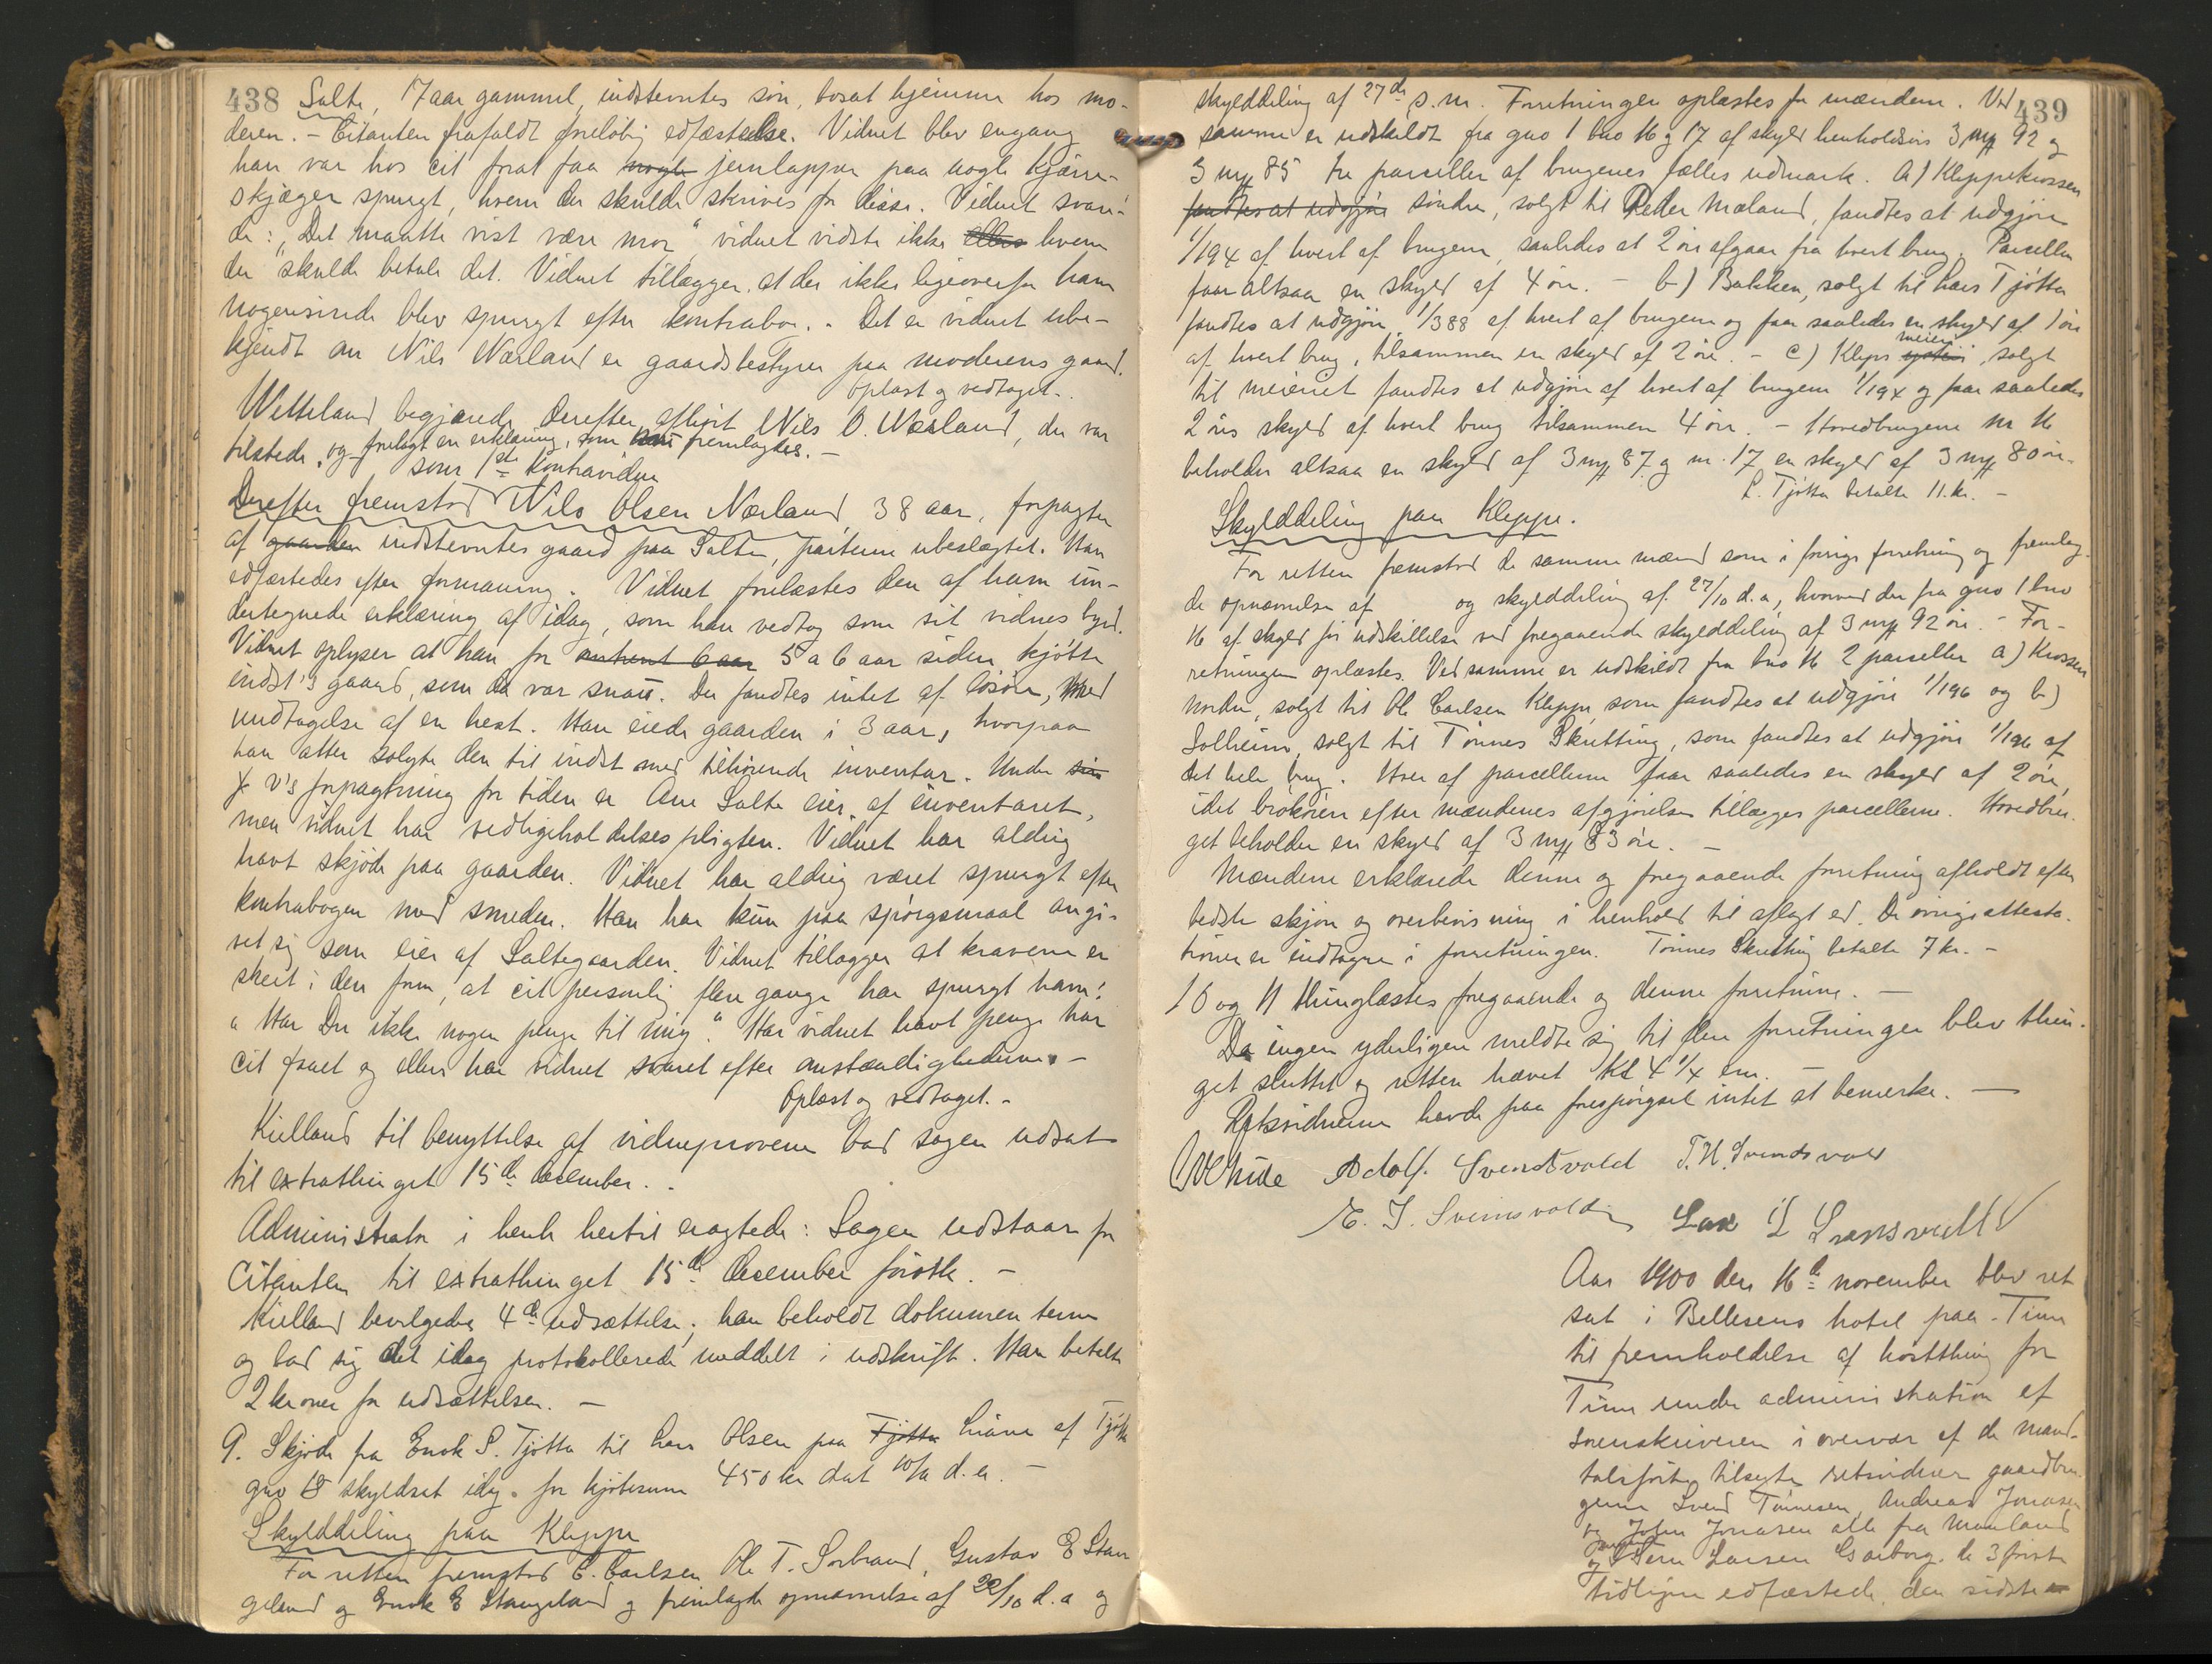 438 Salte, 17 aar gammel, indstevntes søn, bosat hjemme hos mo-
deren. - Citanten frafaldt foreløbig edfæstelse. Vidnet blev engang
han var hos cit forat faa nogle jernlapper paa nogle kjærre-
skjæger spurgt, hvem der skulde skrives for disse. Vidnet svare-
de: "Det maatte vist være mor" vidnet vidste ikke ellers hvem
der skulde betale det. Vidnet tillægger, at der ikke ligeoverfor ham
nogensinde blev spurgt efter kontrabog. - Det er vidnet ube-
kjendt om Nils Nærland er gaardsbestyrer paa moderens gaard.
Oplæst og vedtaget. -
Wetteland begjærede derefter afhørt Nils O. Nærland, der var
tilstede, og frelagt en erklæring, som fremlagdes. -
som 1ste Kontravidne
Derefter fremstod Nils Olsen Nærland, 38 aar, forpagter
af gaarden indstevntes gaard paa Salte, parterne ubeslægtet. Han
edfæstedes efter formaning. Vidnet forelæstes den af ham un-
dertegnede erklæring af idag, som han vedtog som sit vidnesbyrd.
Vidnet oplyser at han for omtrent 6 aar 5 a 6 aar siden kjøbte
indst's gaard, som da var snau. Der fandtes intet af løsøre, med
undtagelse af en hest. Han eiede gaarden i 3 aar, hvorpaa
han atter solgte den til indst med tilhørende inventar. Under sin
v's forpagtning for tiden er Ane Salte eier af inventaret,
men vidnet har vedligeholdelsespligten. Vidnet har aldrig
havt skjøde paa gaarden. Vidnet har aldrig været spurgt efter
kontrabogen med smeden. Han har kun paa spørgsmaal angi-
vet sig som eier af Saltegaarden. Vidnet tillægger at kravene er
skeet i den form, at cit personlig flere gange har spurgt ham:
"Har Du ikke nogen penge til mig". Har vidnet havt penge har
cit faaet og ellers har vidnet svaret efter omstændighederne. -
Oplæst og vedtaget. -
Kielland til benyttelse af vidneprovene bad sagen udsat
til extrathinget 15de december. -
Administrator i henh hertil eragtede: Sagen udstaar for
Citanten til extrathinget 15de december førstk. -
Kielland bevilgedes 4de udsættelse; han beholdt dokumenterne
og bad sig det idag protokollerede meddelt i udskrift. Han betalte
2 kroner for udsættelsen. -
9. Skjøde fra Enok S. Tjøtta til Lars Olsen paa Tjøtta Liane af Tjøtta
gno 18 skyldsat idag. for kjøbesum 450 kr dat d.a. -
Skylddeling paa Kleppe
For retten fremstod C. Carlsen Ole T. Sorbraud, Gustav E Stan
geland og Enok E Stangeland og fremlagde opnævnelse af 22/10 d.a og
439
skylddeling af 27de s.m. Forretningen oplæstes for mændene. Ved
samme er udskildt fra gno 1 bno 16 og 17 af skyld henholdsvis 3 my 92 og
3 my 85 tre parceller af brugenes fælles udmark. a) Kleppekrossen
fandtes at udgjøre søndre, solgt til Peder Mæland, fandtes at udgjøre
1/194 af hvert af brugene, saaledes at 2 øre afgaar fra hvert brug. Parcellen
faar altsaa en skyld af 4 øre. - b) Bakken, solgt til Lars Tjøtta
fandtes at udgjøre 1/388 af hvert af brugene og faar saaledes en skyld af 1 øre
af hvert brug, tilsammen en skyld af 2 øre. - c) Klepp meieri, solgt
til meieriet fandtes at udgjøre af hvert af brugene 1/194 og faar saaledes
2 øres skyld af hvert brug tilsammen 4 øre. - Hovedbrugene nr 16
beholder altsaa en skyld af 3 my 87 og nr. 17 en skyld af 3 my 80 øre.
L. Tjøtta betalte 11 kr. -
Skylddeling paa Kleppe.
For retten fremstod de samme mænd som i forrige forretning og fremlag-
de opnævnelse af og skylddeling af 27/10 d.a, hvorved der fra gno 1 bno
16 af skyld før udskillelse ved foregaaende skylddeling af 3 my 92 øre. - For-
retningen oplæstes. Ved samme er udskildt fra bno 16 2 parceller a) Krossen
nordre, solgt til Ole Carlsen Kleppe, som fandtes at udgjøre 1/196 og b)
Solheim, solgt til Tønnes Skretting, som fandtes at udgjøre 1/196 af
det hele brug. Hver af parcellerne faar saaledes en skyld af 2 øre,
idet brøkøren efter mændenes afgjørelse tillægges parcellerne. Hovedbru-
get beholder en skyld af 3 my 83 øre. -
Mændene erklærede denne og foregaaende forretning afholdt efter
bedste skjøn og overbevisning i henhold til aflagt ed. De øvrige attesta-
tioner er indtagne i forretningen. Tønnes Skretting betalte 7 kr. -
10 og 11 thinglæstes foregaaende og denne forretning. -
Da ingen yderligere meldte sig til flere forretninger blev thin-
get sluttet og retten hævet Kl 4 1/4 em. -
Retsvidnerne havde paa forespørgsel intet at bemerke. -
Adolf Svendsvold T. H. Svendsvold
E. J. Svensvold Lars L Svensvoll
Aar 1900 den 16de november blev ret
sat i Bellesens hotel paa Time
til fremholdelse af høstthing for
Time under administration af
sorenskriveren i overvær af de mand-
talsførte tilsagte retsvidner gaardbru-
gerne Svend Tønnesen, Andreas Jonasen
og John Jonasen alle fra Mauland
og Steen Larsen Garborg. de 3 første
tidligere edfæstede, den sidste